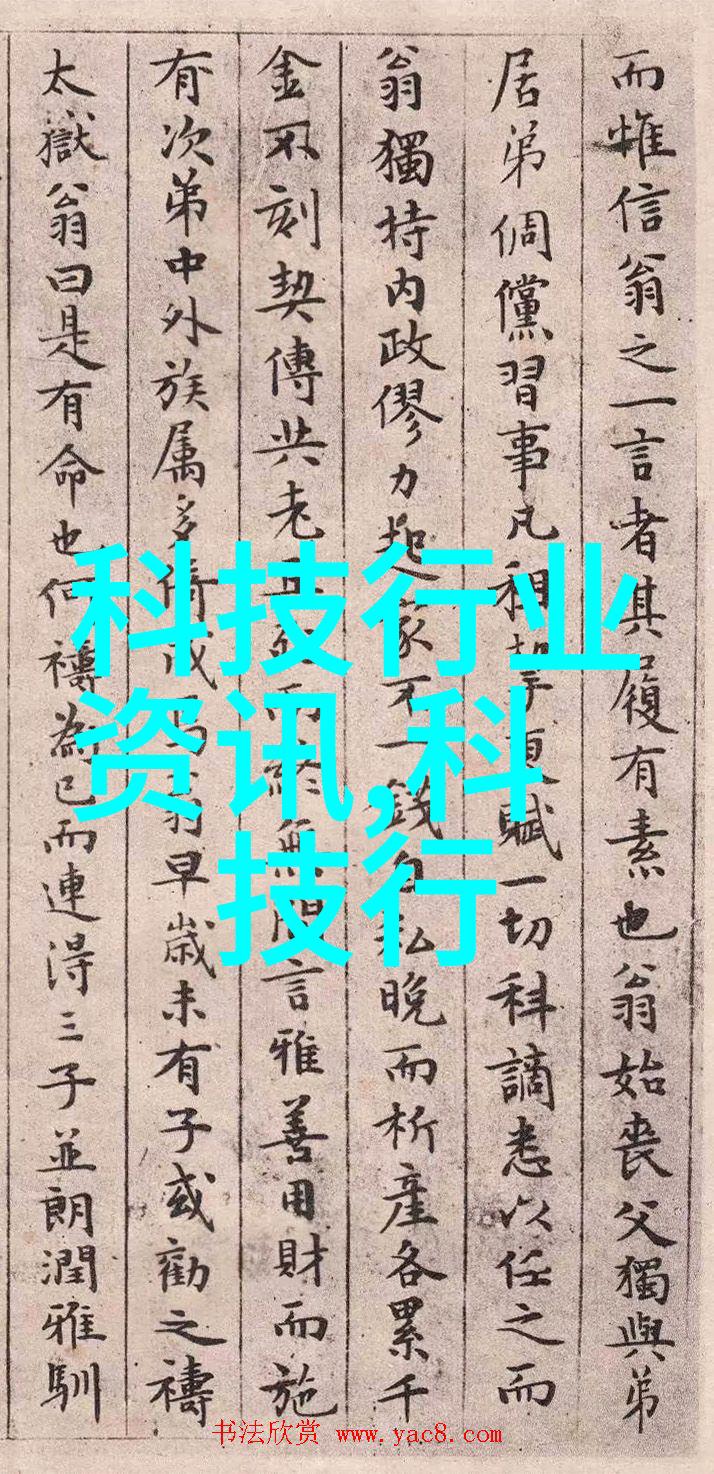 而惟信翁之一言者其履有素也翁始丧父獨與弟
居弟倜儻習事凡租挈更賦一切科謫悉以任之而
翁獨持内政僇力起家不一錢自私晚而析產各累千
金不刻契傳共老且死而終無間言雅善用財而施
有次弟中外族属多倚成焉翁早歳未有子或勸之禱
太嶽翁曰是有命也何禱為已而連得三子並朗潤雅馴
科技行业
资讯,科
技行
书法欣赏 www.yac8.com